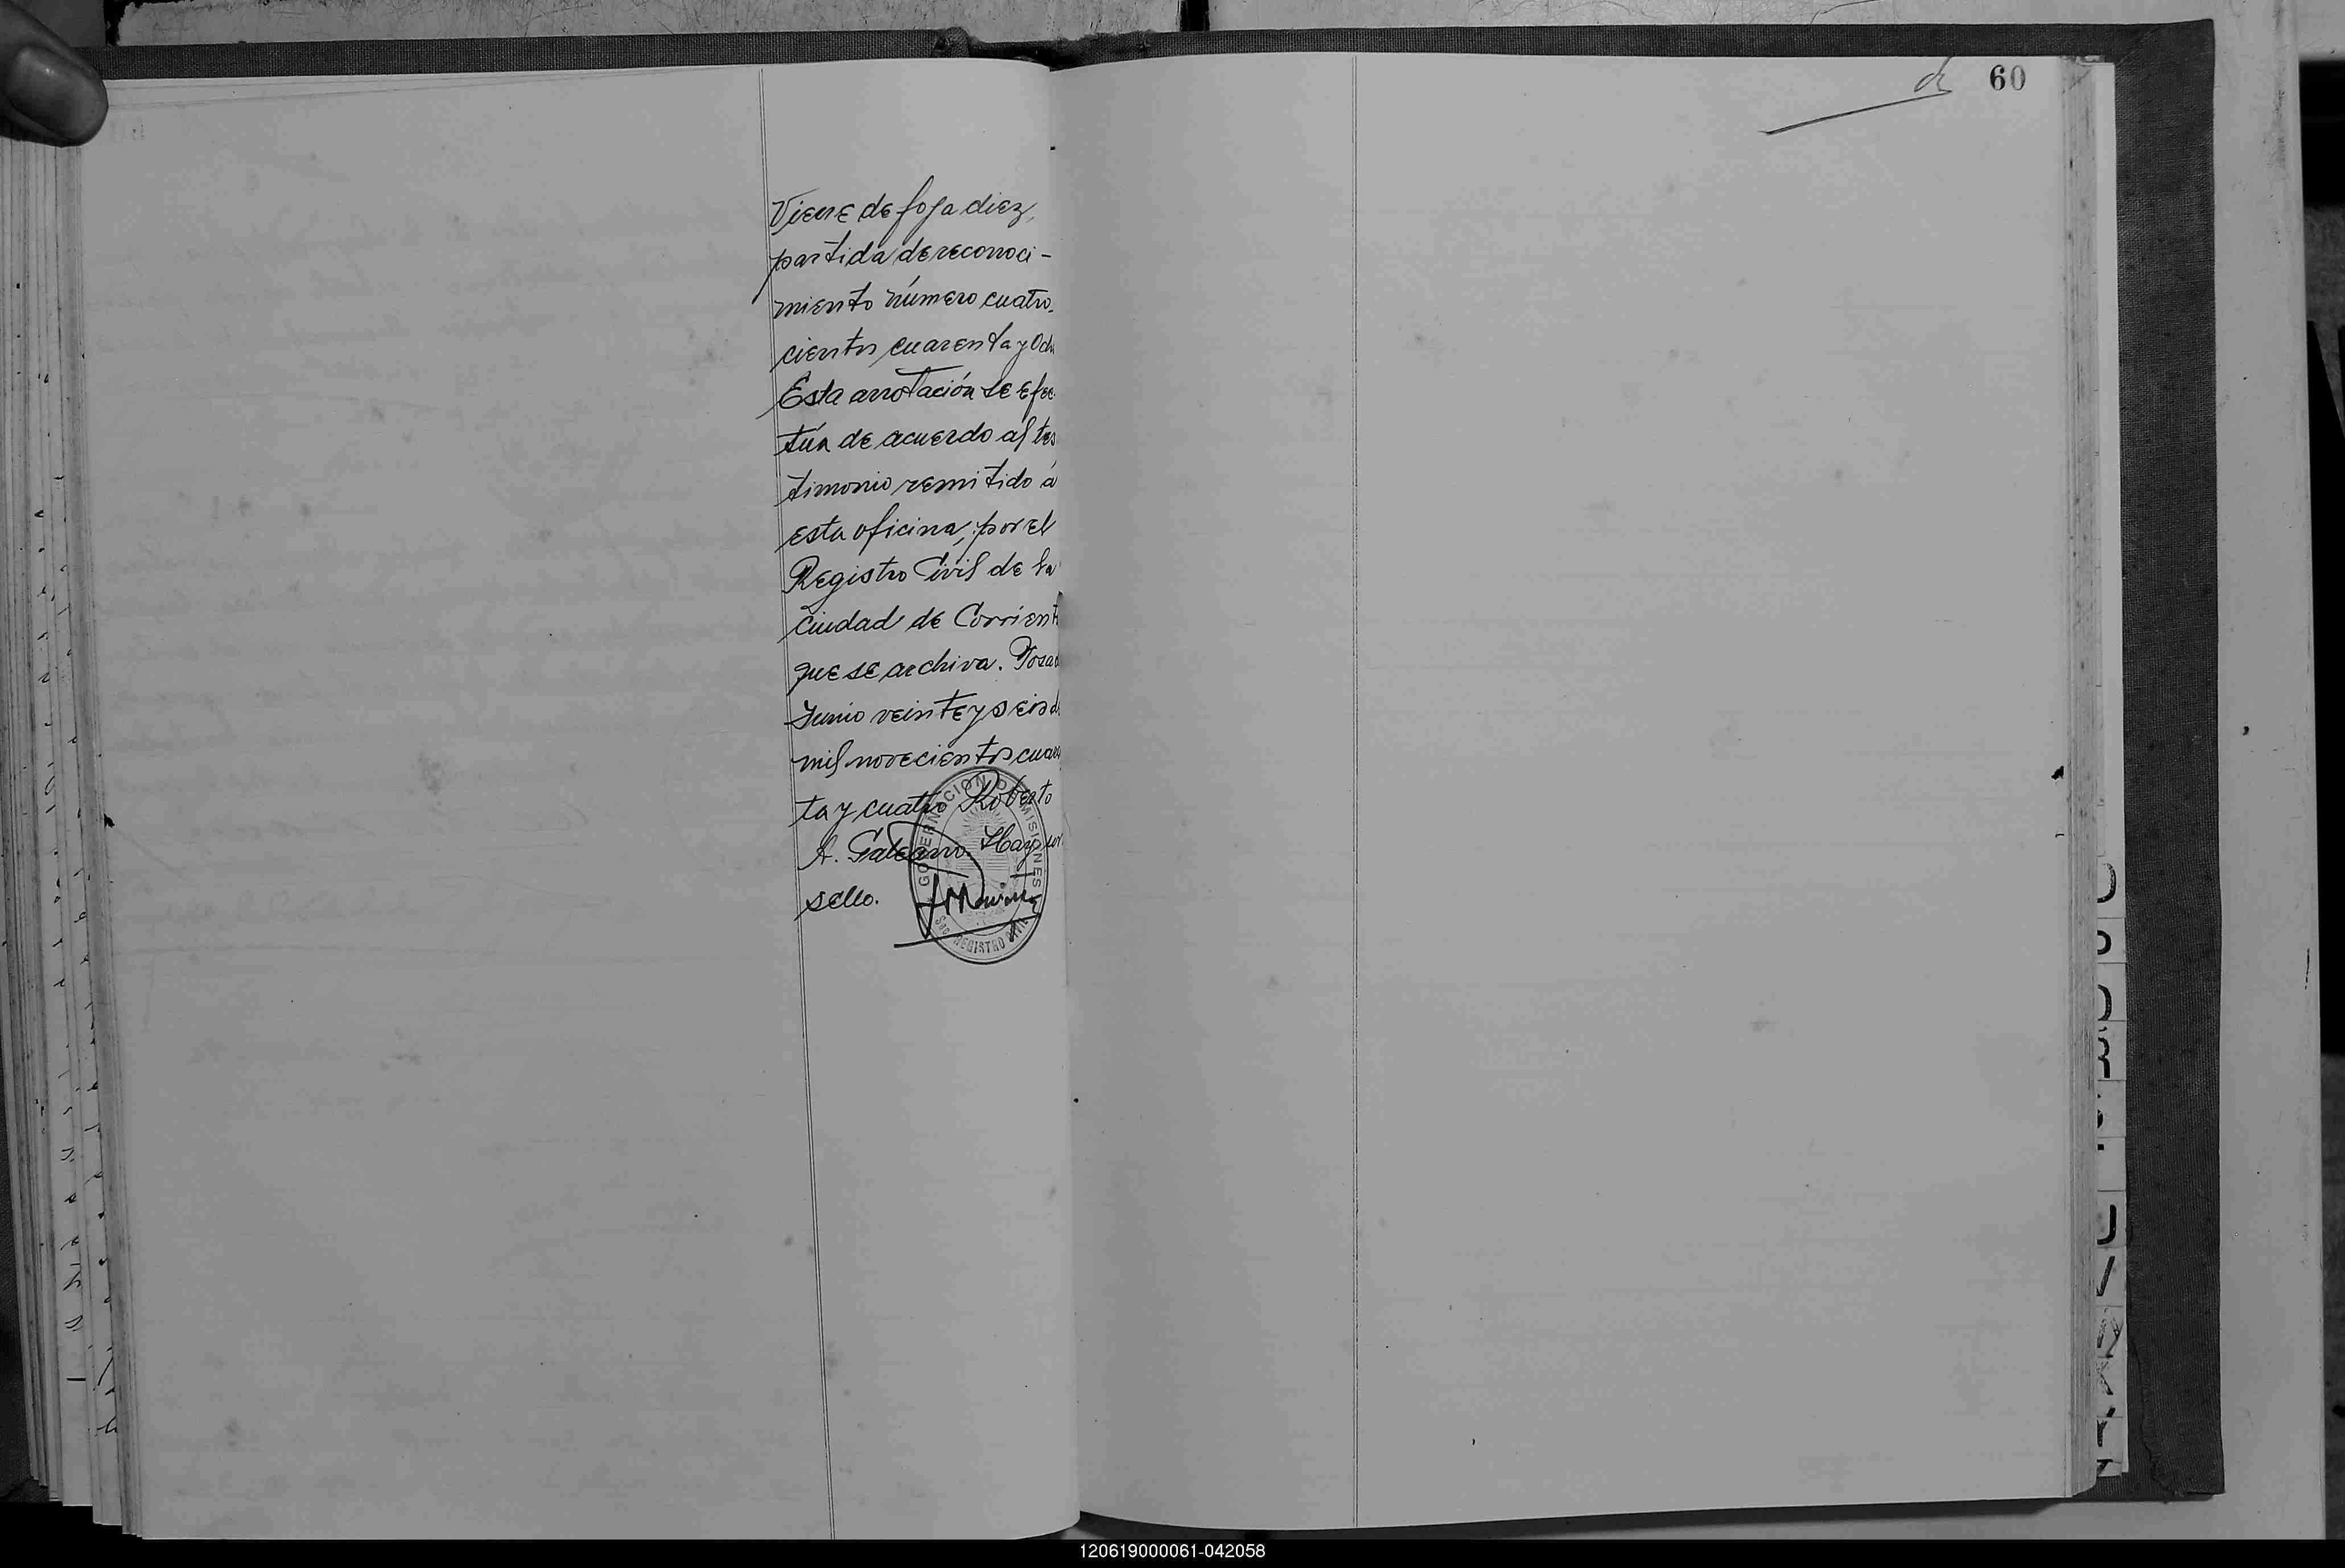 Viene de foja diez,
partida de reconoci-
miento número cuatro-
cientos cuarenta y Och
Esta anotación se efec
túa de acuerdo al tes
timonio remitido á
esta oficina, por el
Registro Civil de la
Ciudad de Corrient
que se archiva. Posad
Junio veinte y seis d
mil novecientos cuaren
ta y cuatro Roberto
A. Galeano. Hay un
sello.
GOBERNACION D MISIONES
Sec. REGISTRO CIVIL
60
120619000061-042058